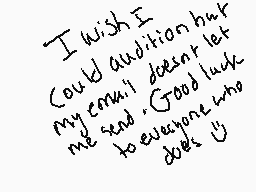 I wish I
could audition but
my email doesnt let
me send. Good luck
to everyone who
does